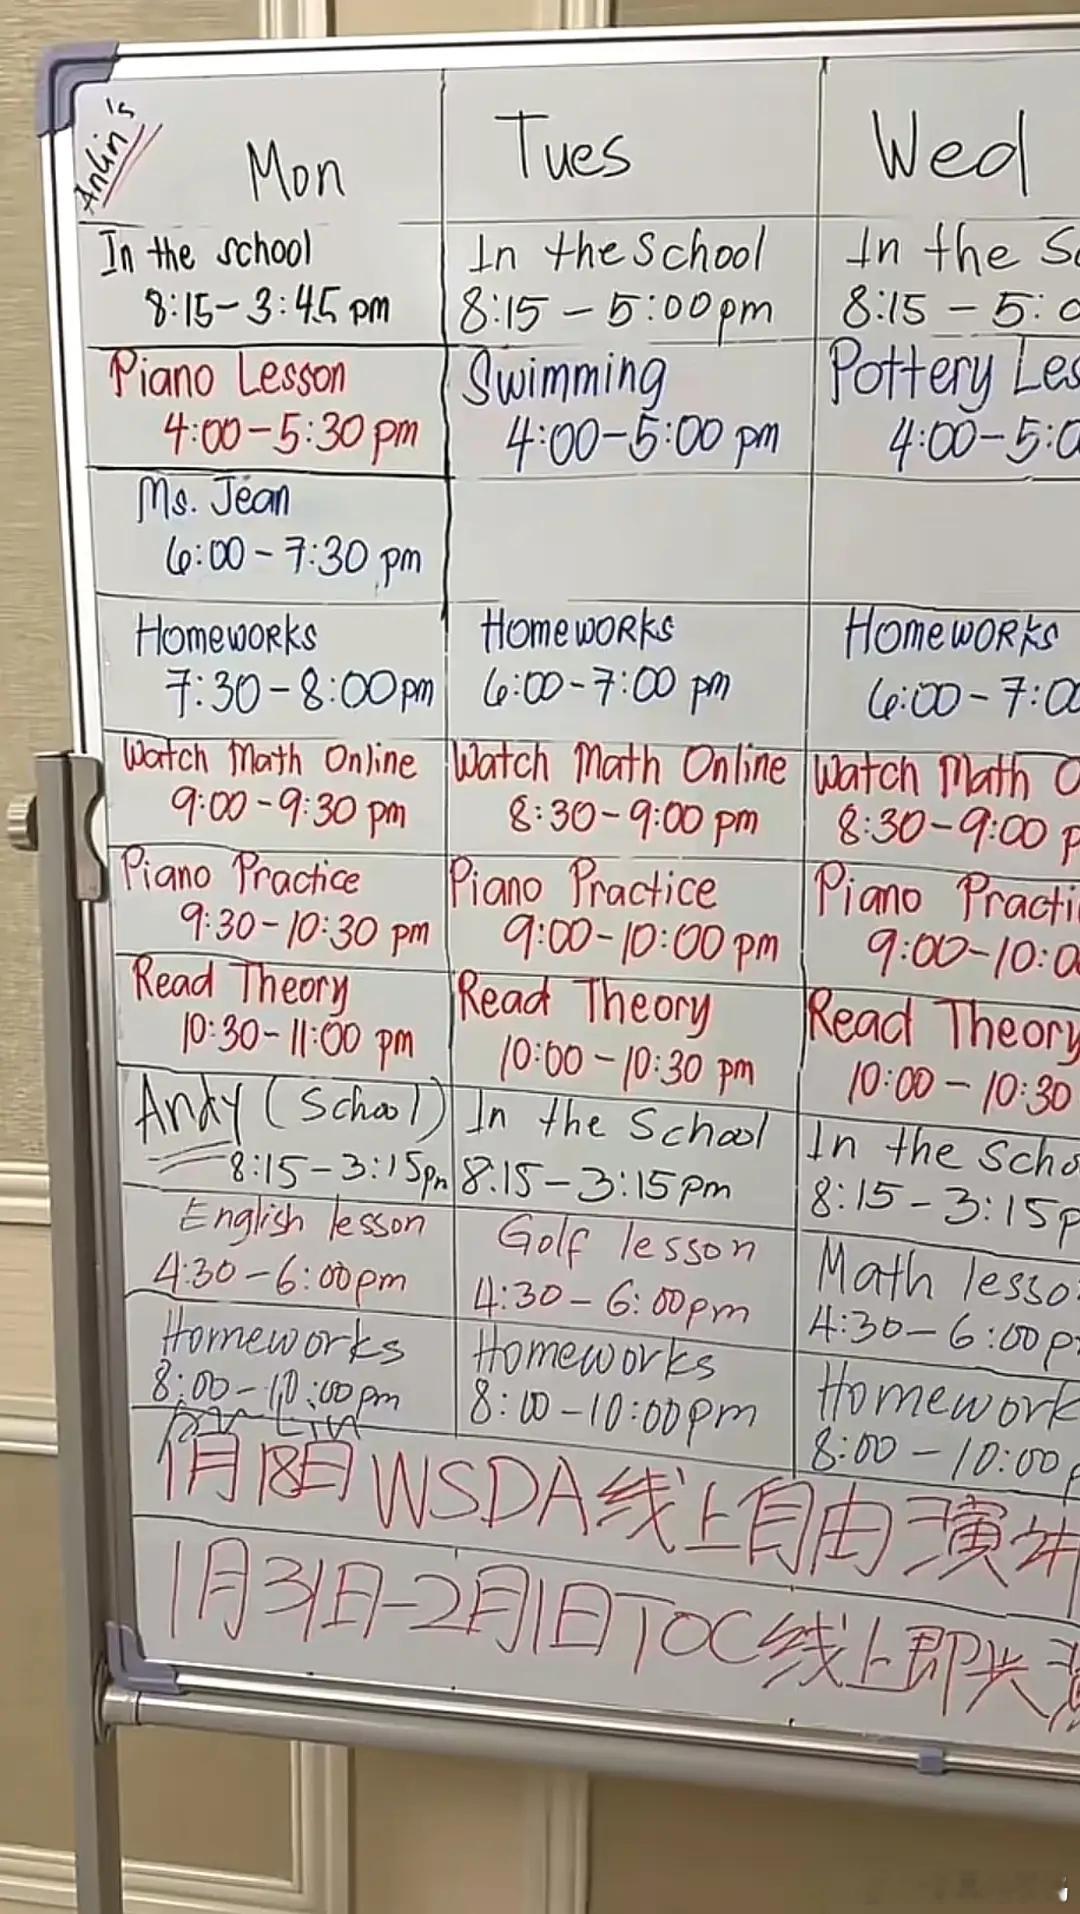 Anlin's
Mon
Tues
Wed
In the school
8:15-3:45 pm
In the School
8:15 - 5:00pm
In the
8:15 - 5:
Piano Lesson
4:00-5:30 pm
Swimming
4:00-5:00 pm
Pottery
4:00-5:
Ms. Jean
6:00-7:30 pm
Homeworks
7:30-8:00pm
Homeworks
6:00-7:00 pm
Homeworks
6:00-7:0
Watch Math Online
9:00-9:30 pm
Watch Math Online
8:30-9:00 pm
Watch Math
8:30-9:00
Piano Practice
9:30-10:30 pm
Piano Practice
9:00-10:00 pm
Piano
9:00-10:0
Read Theory
10:30-11:00 pm
Read Theory
10:00-10:30 pm
Read Theory
10:00-10:30
Andy (School)
8:15-3:15pm
In the School
8:15-3:15pm
In the
8:15-3:15p
English lesson
4:30-6:00pm
Golf lesson
4:30-6:00pm
Math
4:30-6:00p
Homeworks
8:00-10:00pm
Homeworks
8:00-10:00pm
Homework
8:00-10:00
1月18日WSDA线上自由演讲
1月31日-2月1日TOC线上即兴